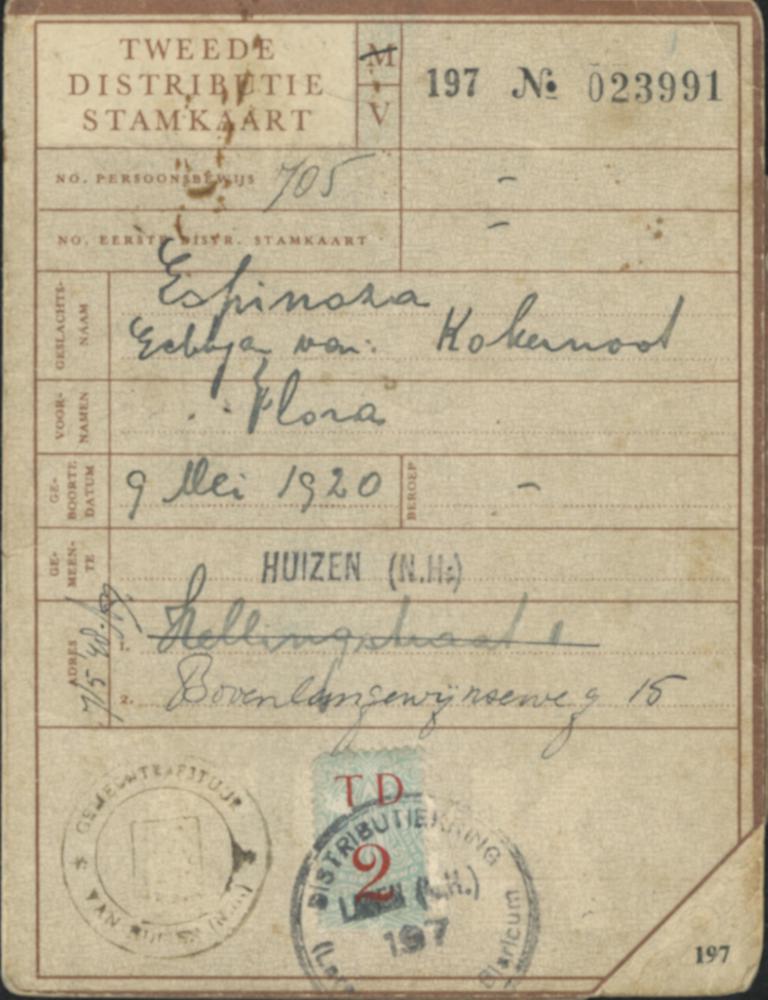 TWEEDE
DISTRIBUTIE
STAMKAART
M
V
197 № 023991
NO. PERSOONSBEWIJS 705 –
NO. EERSTE DISTR. STAMKAART –
GESLACHTS-
NAAM
Espinoza
Echtg. van: Kokernoot
VOOR-
NAMEN
Flora
GE-
BOORTE
DATUM
9 Mei 1920
BEROEP
–
GE-
MEEN-
TE
HUIZEN (N.H.)
ADRES
7/5 '48
1. Hellingstraat 1
2. Bovenlangewijnseweg 15
GEMEENTEBESTUUR
VAN HUIZEN (N.H.)
TD
2
DISTRIBUTIEKRING
LAREN (N.H.)
197
Blaricum
197